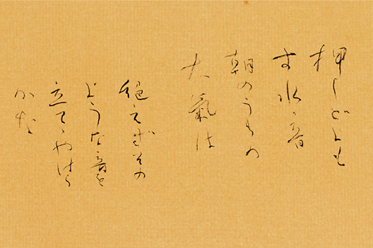 押しどよも
す水の音
朝のうちの
大氣は
絶えずその
ような音を
立てゝやはら